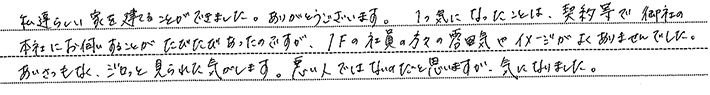 私達らしい家を建てることができました。ありがとうございます。 1つ気になったことは、契約等で御社の
本社にお伺いすることがたびたびあったのですが、1Fの社員の方々の雰囲気やイメージがよくありませんでした。
あいさつもなく、ジロっと見られた気がします。悪い人ではないのだと思いますが、気になりました。